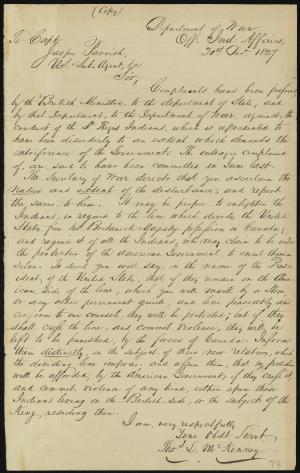 (Copy)
Department of War
Off: Ind. Affairs,
20th Dec. 1827
To Capt
Jasper Parrish,
U.S. Sub Agent, &c
Sir,
Complaints have been preferred
by the British Minister, to the department of State, and
by that Department, to the Department of War, against the
conduct of the St. Regis Indians, which is represented to
have been disorderly to an extent which demands the
interference of the Government. The outrages complained
of, are said to have been committed in June last.
The Secretary of War directs that you ascertain the
nature and extent of the disturbance, and report
the same to him. It may be proper to enlighten the
Indians, in regard to the line which divides the United
States, from his Britannick Majesty's possessions in Canada;
and require of all the Indians, who may claim to be under
the protection of the American Government to enrol them-
selves. To such you will say, in the name of the Pres-
ident, of the United States, that if they remain on the Amer-
ican side of the line, which you will mark by a stone
or any other permanent guide, and live peaceably and
conform to our counsels, they will be protected; but if they
shall cross the line, and commit violence, they will be
left to be punished, by the forces of Canada. Inform
them distinctly, on the subject of their new relation, which
the dividing line imposes, and assure them, that no protection
will be afforded, by the American Government, if they cross it,
and commit violence of any kind, either upon those
Indians living on the British side, or the subjects of the
King, residing there.
I am, very respectfully
Your Obdt Servt
Thos. L. McKenney